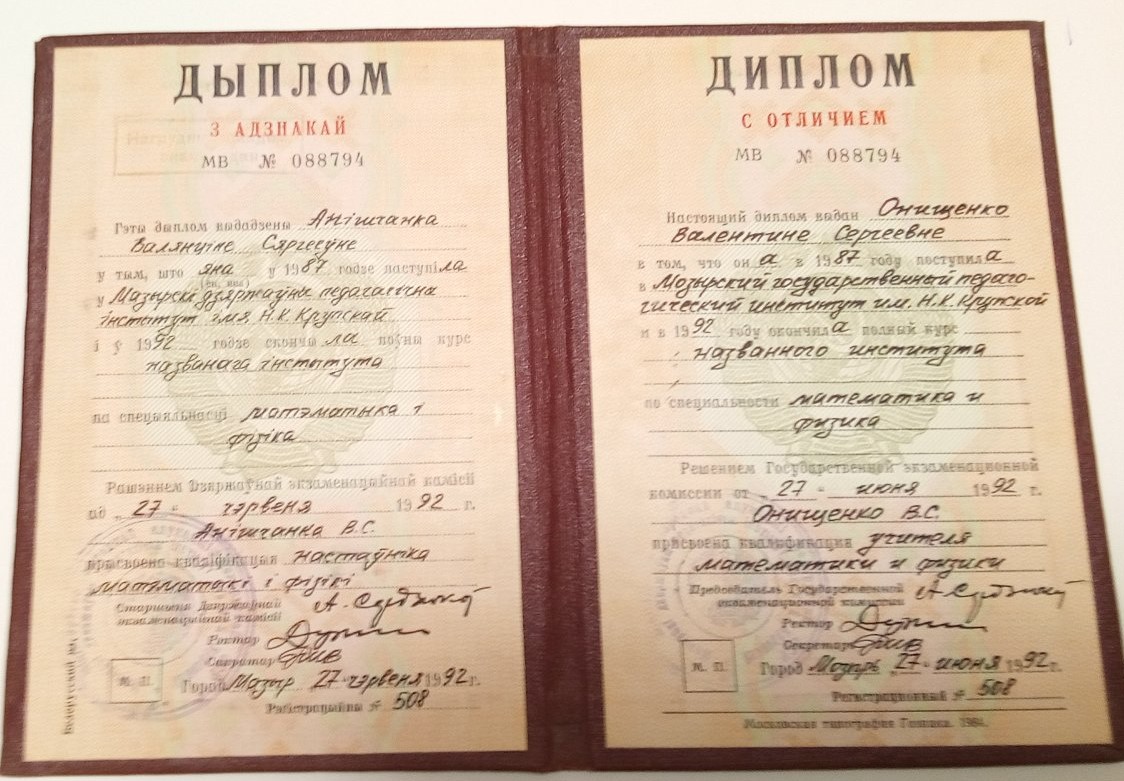 ДЫПЛОМ
З АДЗНАКАЙ
МВ № 088794
Гэты дыплом выдадзены Анішчанка
Валянціне Сяргееўне
у тым, што яна у 1987 годзе паступіла
(ён, яна)
у Мазырскі дзяржаўны педагагічны
інстытут імя Н.К. Крупскай
і ў 1992 годзе скончыла поўны курс
названага інстытута
па спецыяльнасці матэматыка і
фізіка
Рашэннем Дзяржаўнай экзаменацыйнай камісіі
ад „27“ чэрвеня 1992 г.
Анішчанка В.С.
прысвоена кваліфікацыя настаўніка
матэматыкі і фізікі
Старшыня Дзяржаўнай
экзаменацыйнай камісіі
Рэктар
Сакратар
М. П.
Горад Мазыр 27 чэрвеня 1992 г.
Рэгістрацыйны № 508
ДИПЛОМ
С ОТЛИЧИЕМ
МВ № 088794
Настоящий диплом выдан Онищенко
Валентине Сергеевне
в том, что она в 1987 году поступила
в Мозырский государственный педаго-
гический институт им. Н.К. Крупской
и в 1992 году окончила полный курс
названного института
по специальности математика и
физика
Решением Государственной экзаменационной
комиссии от „27“ июня 1992 г.
Онищенко В.С.
присвоена квалификация учителя
математики и физики
Председатель Государственной
экзаменационной комиссии
Ректор
Секретарь
М. П.
Город Мозырь „27“ июня 1992 г.
Регистрационный № 508
Московская типография Гознака. 1984.